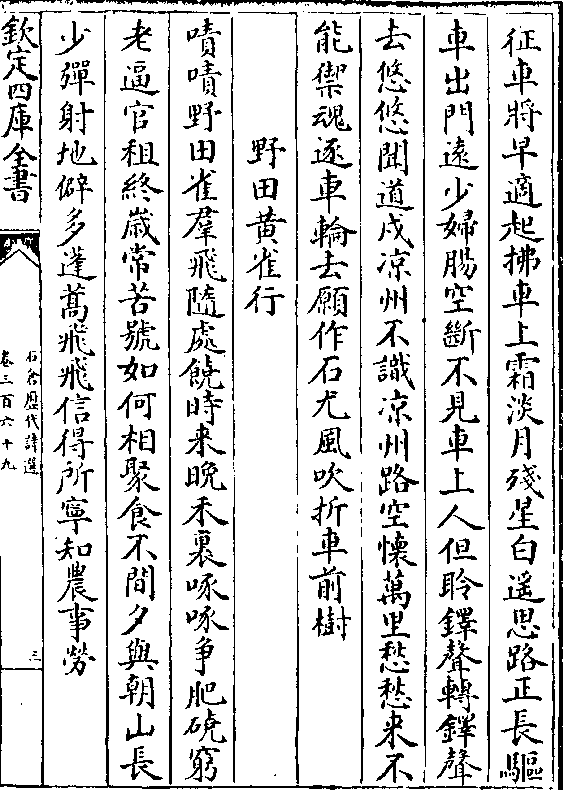 征車將早適起拂車上霜淡月殘星白遥思路正長驅
車出門遠少婦腸空斷不見車上人但聆鐸聲轉鐸聲
去悠悠聞道戍凉州不識凉州路空懐萬里愁愁来不
能禦魂逐車輪去願作石尤風吹折車前樹
野田黄雀行
嘖嘖野田雀羣飛隨處饒時来晩禾裏啄啄争肥磽窮
老逼官租終嵗常苦號如何相聚食不間夕與朝山長
少彈射地僻多蓬蒿飛飛信得所寧知農事勞
欽定四庫全書
石倉歷代詩選
卷三百六十九
三